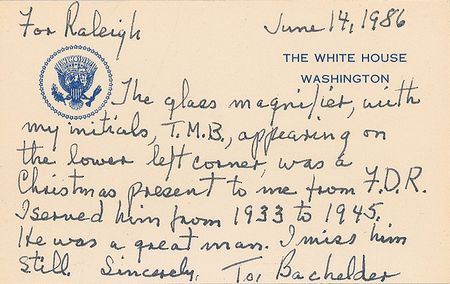 For Raleigh June 14, 1986
THE WHITE HOUSE
WASHINGTON
The glass magnifier, with
my initials, T.M.B., appearing on
the lower left corner, was a
Christmas present to me from F.D.R.
I served him from 1933 to 1945.
He was a great man. I miss him
still. Sincerely, Toi Bachelder